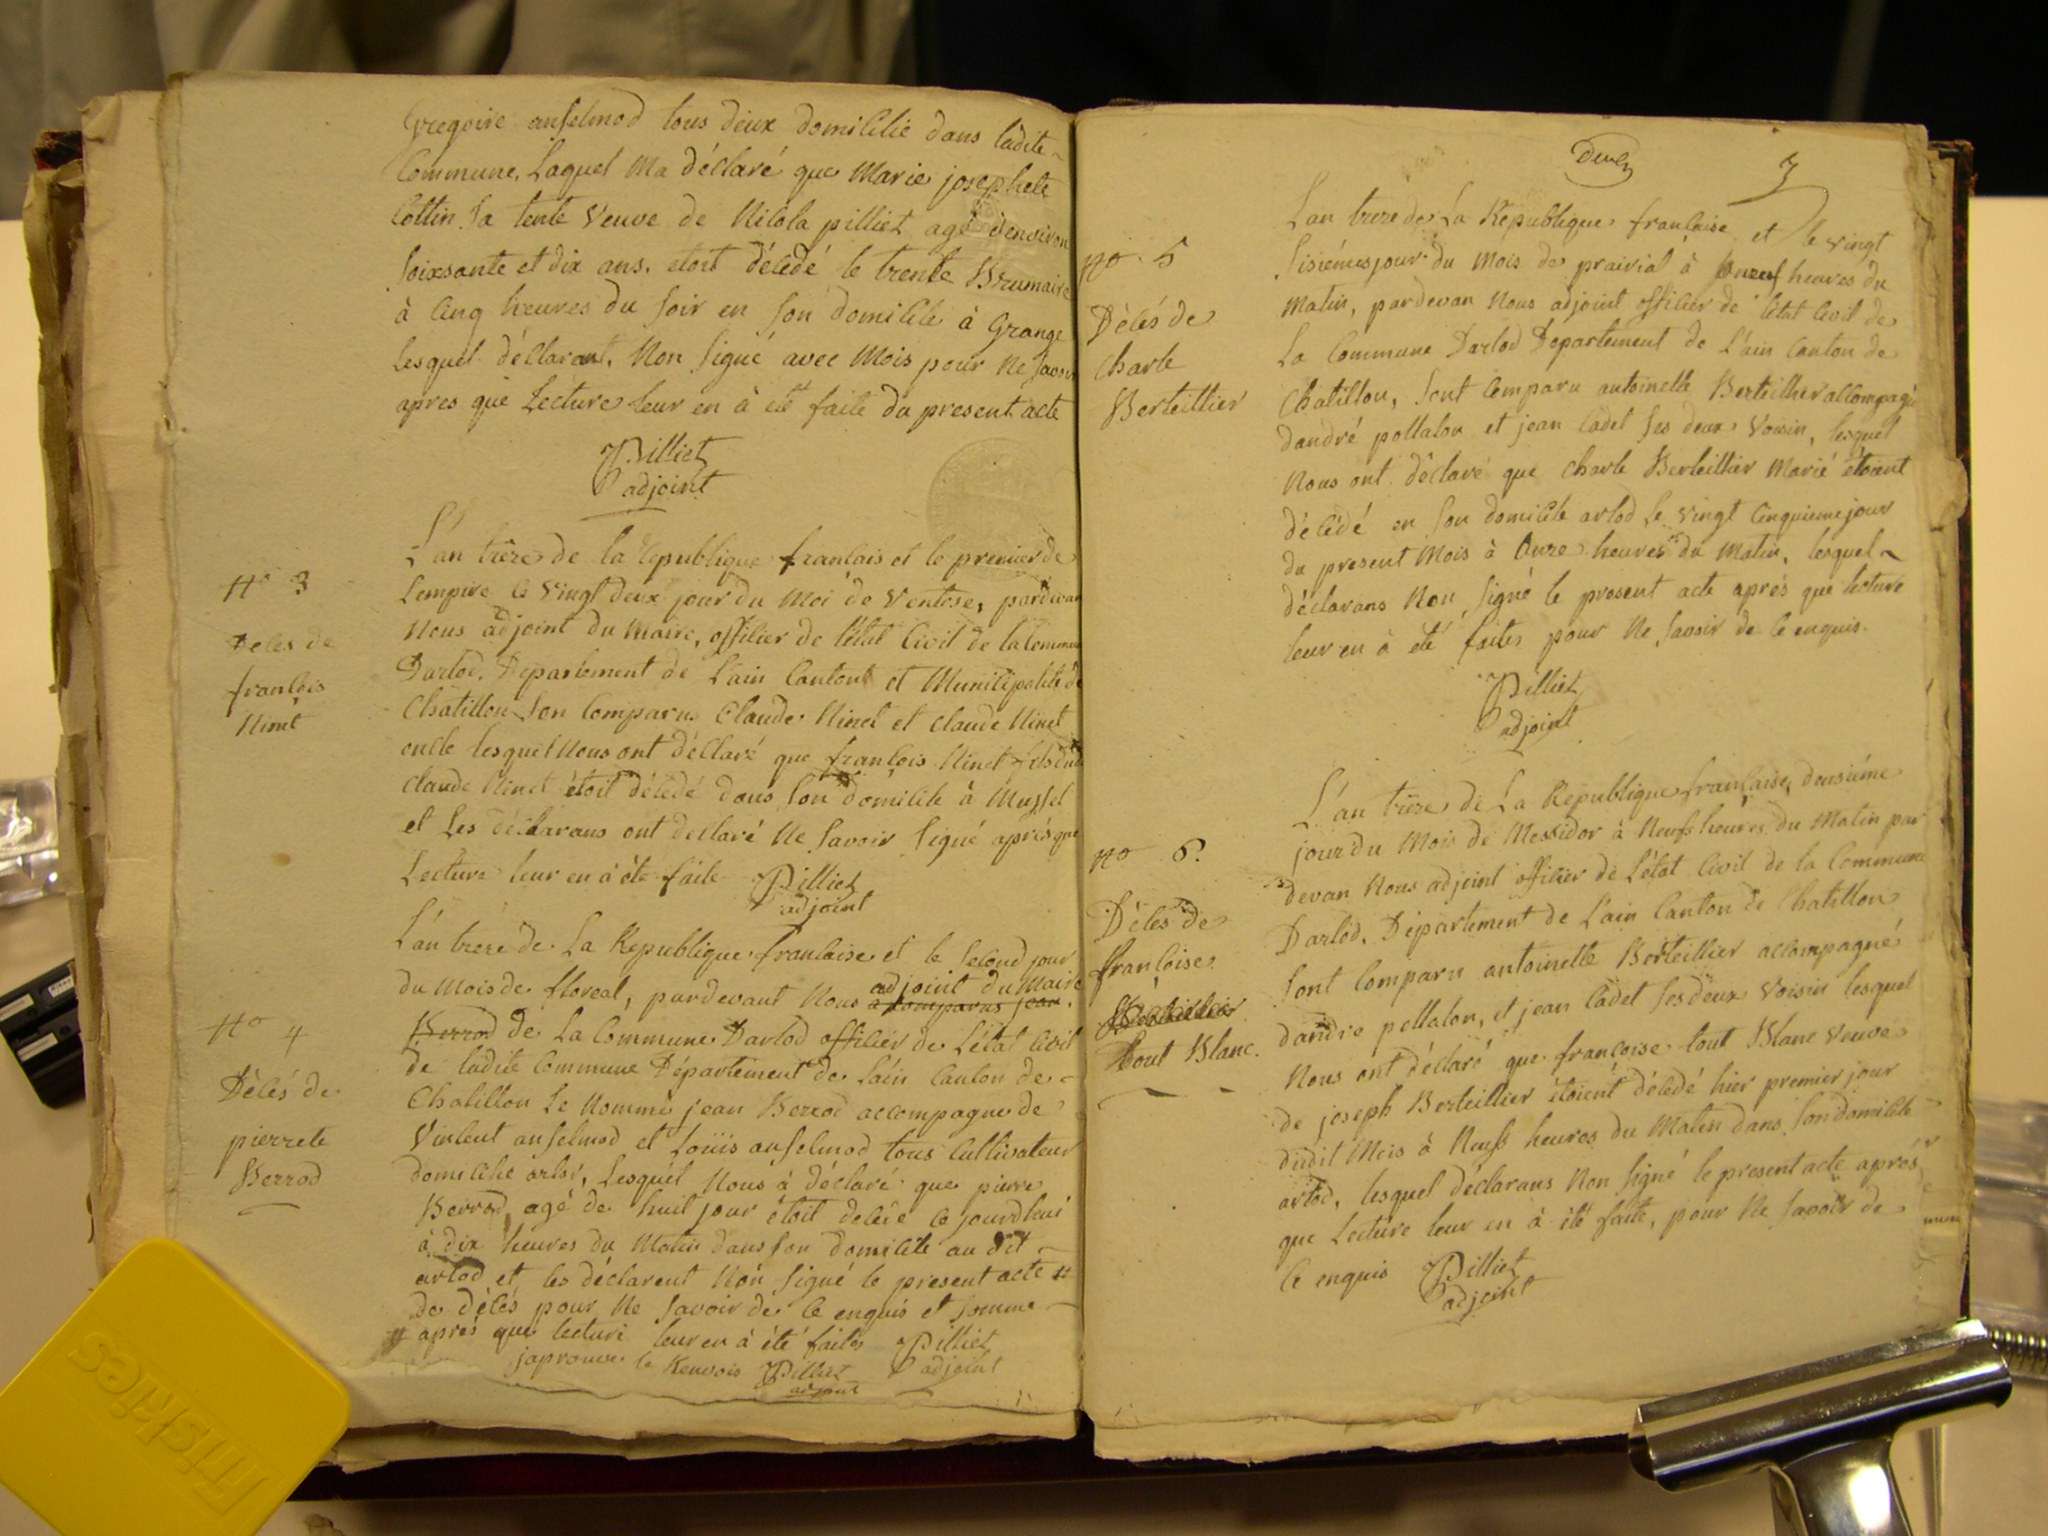 Gregoire anselmod tous deux domicilié dans ladite
Commune, Laquel Ma déclaré que Marie josephete
Cottin Sa tente Veuve de Nicola pilliet agé denviron
Soixsante et dix ans. etoit décédé le trente Brumaire
à Cinq heures du Soir en Son domicile à Grange
lesquel déclarant, Non Signé avec Mois pour Ne Savoir
apres que Lecture leur en à été faite du present acte
Pilliet
adjoint
L'an trêze de la republique francais et le premier de
Lempire le Vingt deux jour du Moi de Ventose, pardevan
Nous adjoint du Maire, officier de l'état Civil de la Commune
Darlod, Departement de L'ain Canton et Municipalité de
Chatillon Son Comparus Claude Ninet et Claude Ninet
oncle lesquel Nous ont déclaré que françois Ninet fils dud
Claude Ninet étoit décédé dans Son domicile à Mussel
et Les déclarans ont declaré Ne Savoir Signé après que
Lecture leur en à été faite Pilliet
adjoint
No 3
Deces de
francois
Ninet
L'an treze de La Republique francaise et le Second jour
du Mois de floreal, pardevant Nous adjoint du Maire
a Comparus jean
Berrod de La Commune Darlod officier de L'état Civil
de ladite Commune Département de L'ain Canton de
Chatillon Le Nommé jean Berrod accompagné de
Vincent anselmod et Louis anselmod tous Cultivateur
domicilié arlod, Lesquél Nous à déclaré que pierre
Berrod agé de huit jour étoit décédé ce jourdhui
à dix heures du Matin dans Son domicile au dit
arlod et les déclarent Non Signé le present acte #
de décés pour Ne Savoir de ce enquis et Somme
# après que lecture leur en à été faites Pilliet
adjoint
japrouve le Renvois Pilliet
adjoint
No 4
Décés de
pierrete
Berrod
3
L'an treze de La Republique francaise et le vingt
Sisiémes jour du Mois de prairial à heures du
Matin, pardevan Nous adjoint officier de létat Civil de
La Commune Darlod Departement de L'ain Canton de
Chatillon, Sont Comparu antoinette Berteillier accompagé
dandré pollalon et jean Cadet Ses deux Voisin, lesquel
Nous ont déclaré que charle Berteillier Marié étoient
décédé en Son domicile arlod Le Vingt Cinquieme jour
du present Mois à Onze heures du Matin, lesquel
déclarans Non Signé le present acte aprés que lecture
leur en à eté faites pour Ne Savoir de Ce enquis.
Pilliet
adjoint
no 5
Décés de
Charle
Berteillier
L'an trêze de La Republique francaise, deusiéme
jour du Mois de Messidor à Neufs heures du Matin par
devan Nous adjoint officier de L'état Civil de la Commune
Darlod, Département de L'ain Canton de Chatillon
Sont Comparu antoinette Berteillier accompagné
dandre pellalon, et jean Cadet Ses deux Voisin lesquel
Nous ont déclaré que francoise tout Blanc Veuve
de joseph Berteillier étoient décédé hier premier jour
dudit Mois à Neufs heures du Matin dans Son domicile
arlod, lesquel déclarans Non Signé le present acte aprés
que Lecture leur en à été faite, pour Ne Savoir de
Ce enquis Pilliet
adjoint
no 6.
Décés de
francoise
Berteillier
tout Blanc.
friskies